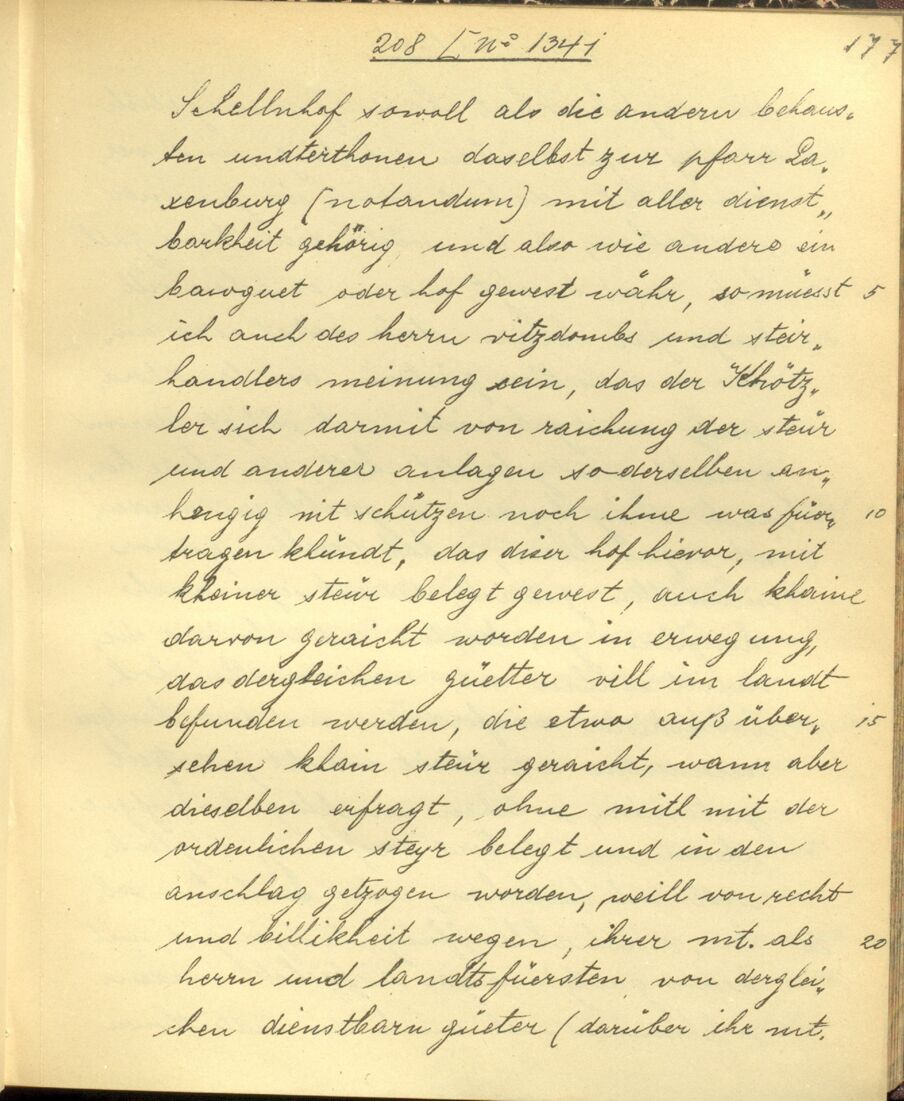 208 [ No 1341
177
Schellnhof sowoll als die andern behaus„
ten undterthonen daselbst zur pfarr La„
xenburg (notandum) mit aller dienst„
barkheit gehörig, und also wie andere ein
bawguet oder hof gewest währ, so müesst 5
ich auch des herrn vitzdombs und steir„
handlers meinung sein, das der Khötz„
ler sich darmit von raichung der steür
und anderer anlagen so derselben an„
hengig nit schützen noch ihme was füer„ 10
tragen khündt, das diser hof hievor, mit
kheiner steür belegt gewest, auch khaine
darvon geraicht worden in erwegung,
das dergleichen güetter vill im landt
befunden werden, die etwo auß über„ 15
sehen khain steür geraicht, wann aber
dieselben erfragt, ohne mitl mit der
ordenlichen steyr belegt und in den
anschlag getzogen worden, weill von recht
und billikheit wegen, ihrer mt. als 20
herrn und landtsfüersten von derglei„
chen dienstbarn güeter (darüber ihr mt.